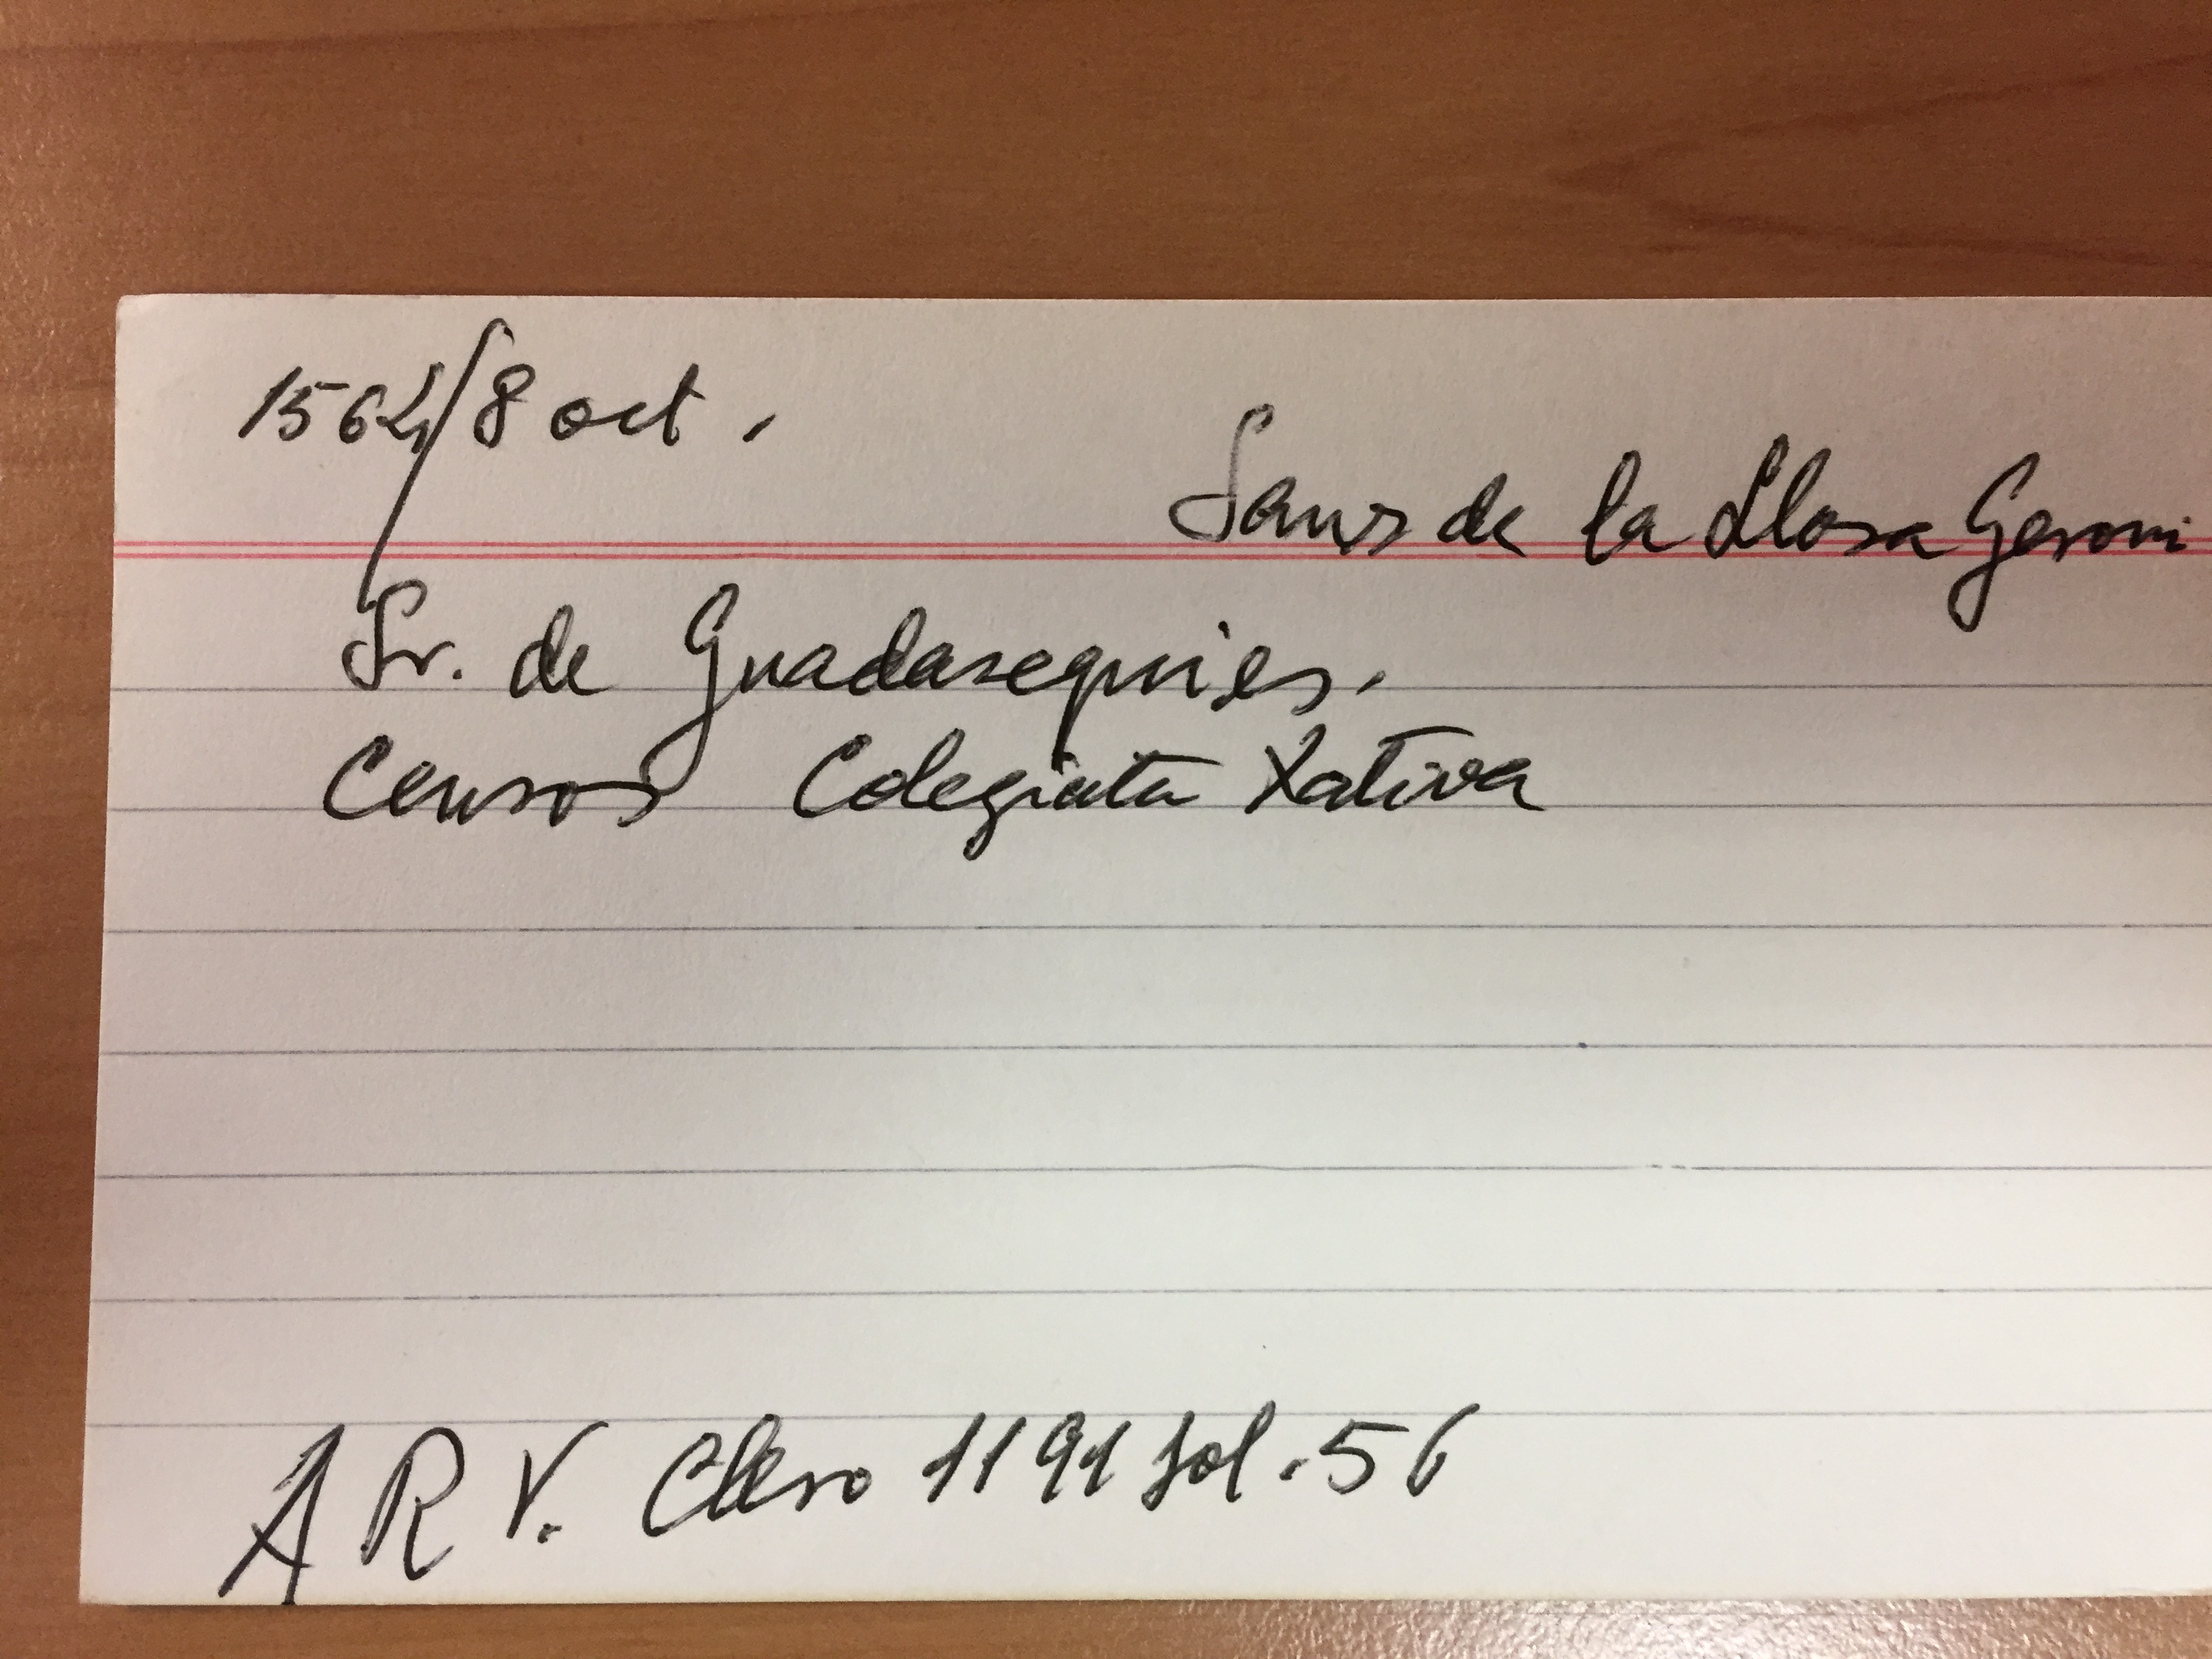 1564/8 oct.
Sanz de la Llosa Geroni
Sr. de Guadasequies.
Censos Colegiata Xativa
A R V. Clero 1191 fol. 56